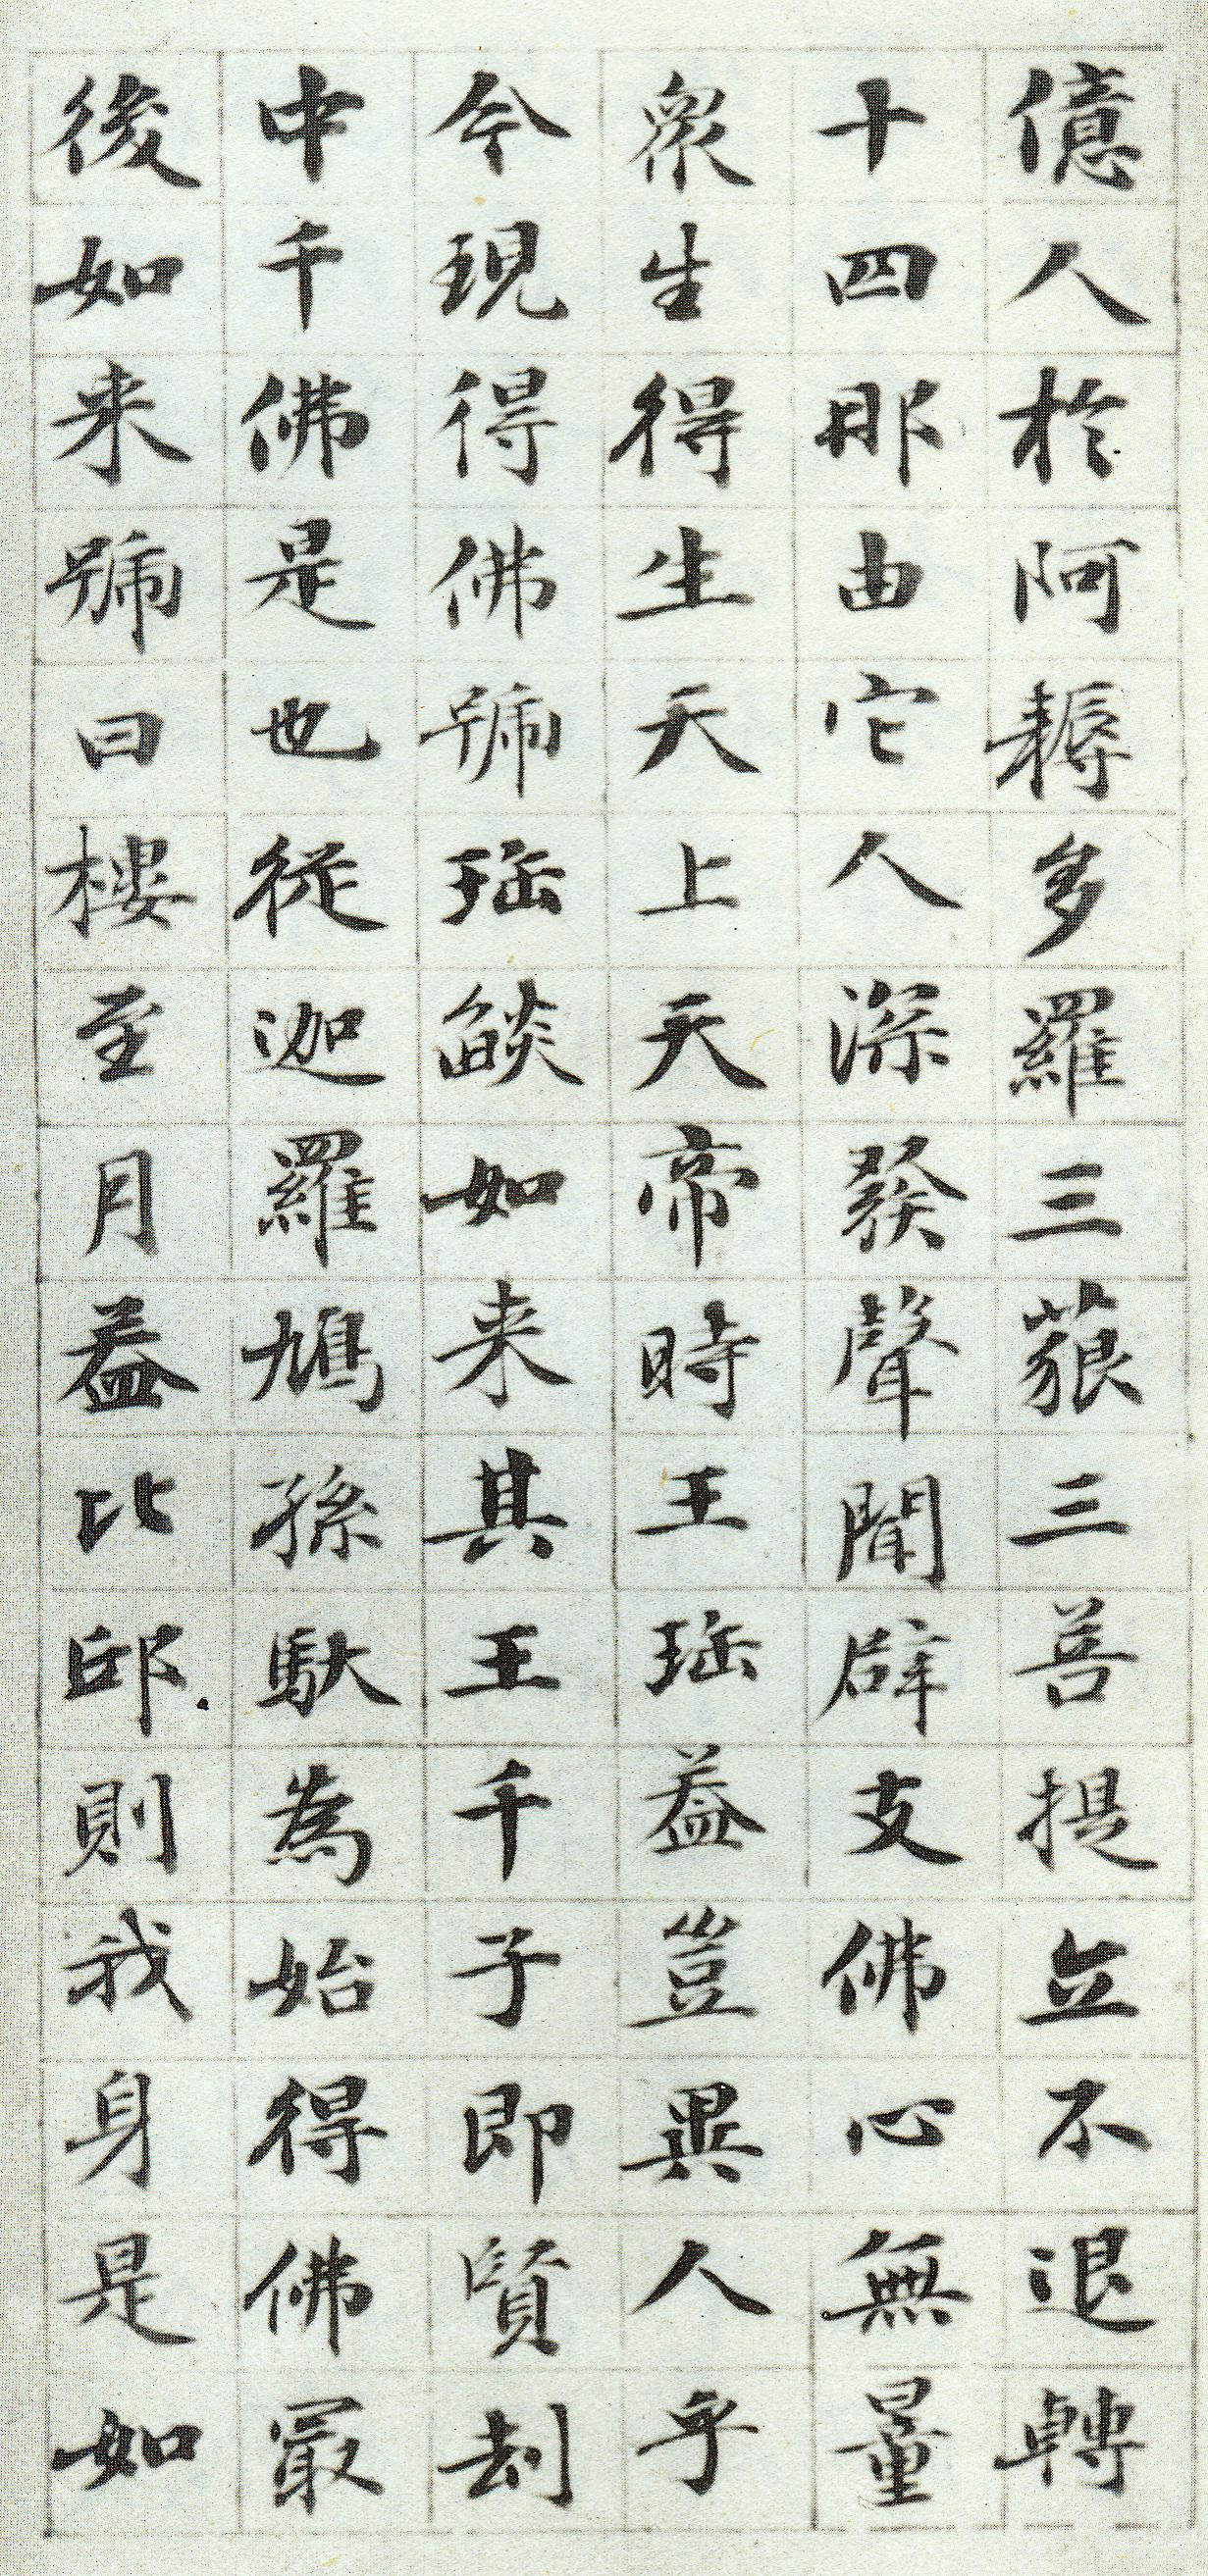 億人於阿耨多羅三藐三菩提立不退轉
十四那由它人深發聲聞辟支佛心無量
眾生得生天上天帝時王珤葢豈異人乎
今現得佛號珤燄如来其王千子即賢刼
中千佛是也從迦羅鳩孫馱為始得佛㝡
後如来號曰樓至月葢比邱則我身是如